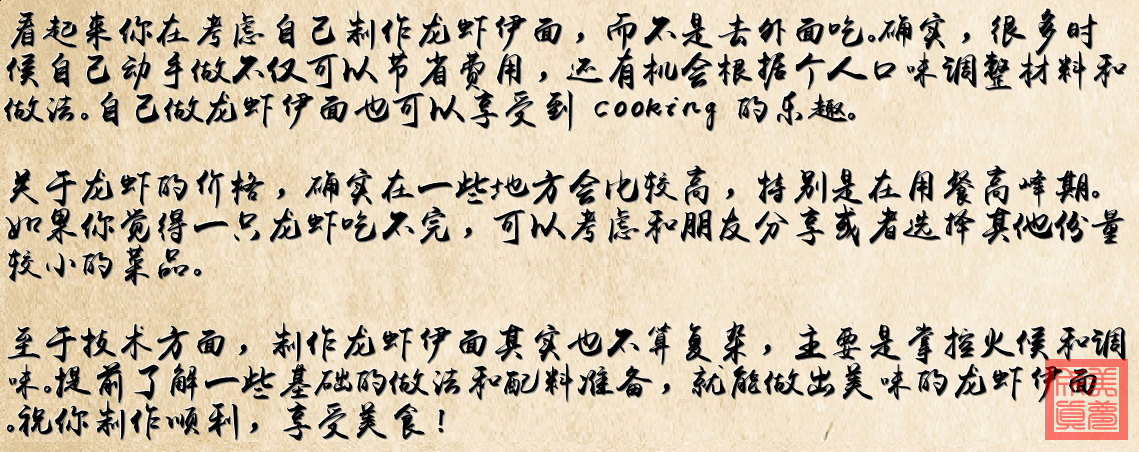 看起来你在考虑自己制作龙虾伊面，而不是去外面吃。确实，很多时
候自己动手做不仅可以节省费用，还有机会根据个人口味调整材料和
做法。自己做龙虾伊面也可以享受到 cooking 的乐趣。
关于龙虾的价格，确实在一些地方会比较高，特别是在用餐高峰期。
如果你觉得一只龙虾吃不完，可以考虑和朋友分享或者选择其他份量
较小的菜品。
至于技术方面，制作龙虾伊面其实也不算复杂，主要是掌控火候和调
味。提前了解一些基础的做法和配料准备，就能做出美味的龙虾伊面
。祝你制作顺利，享受美食！